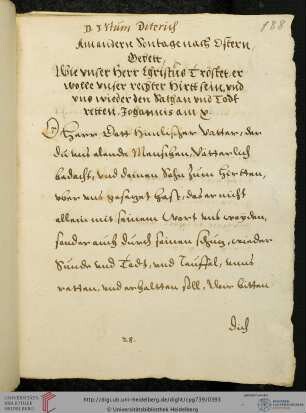 D Vitum Dieterich
188
Am andern Sontage nach Ostern,
Gebett,
Wie unser Herr Christus Tröstet er
wolle unser rechter Hirtt sein, und
uns wieder den Sathan und Todt
retten. Johannis am x.
O Herr Gott Himlischer Vatter, der
du uns elende Menschen, Vätterlich
bedacht, und deinen Sohn zum Hirtten,
uber uns gesetzet hast, das er nicht
allein mit seinem Wort uns weyden,
sonder auch durch seinen schutz, wieder
Sunde und Todt, und Teuffel, unns
retten, und erhaltten soll, Wir bitten
dich
28.
UNIVERSITÄTS
BIBLIOTHEK
HEIDELBERG
http://digi.ub.uni-heidelberg.de/diglit/cpg739/0393
© Universitätsbibliothek Heidelberg